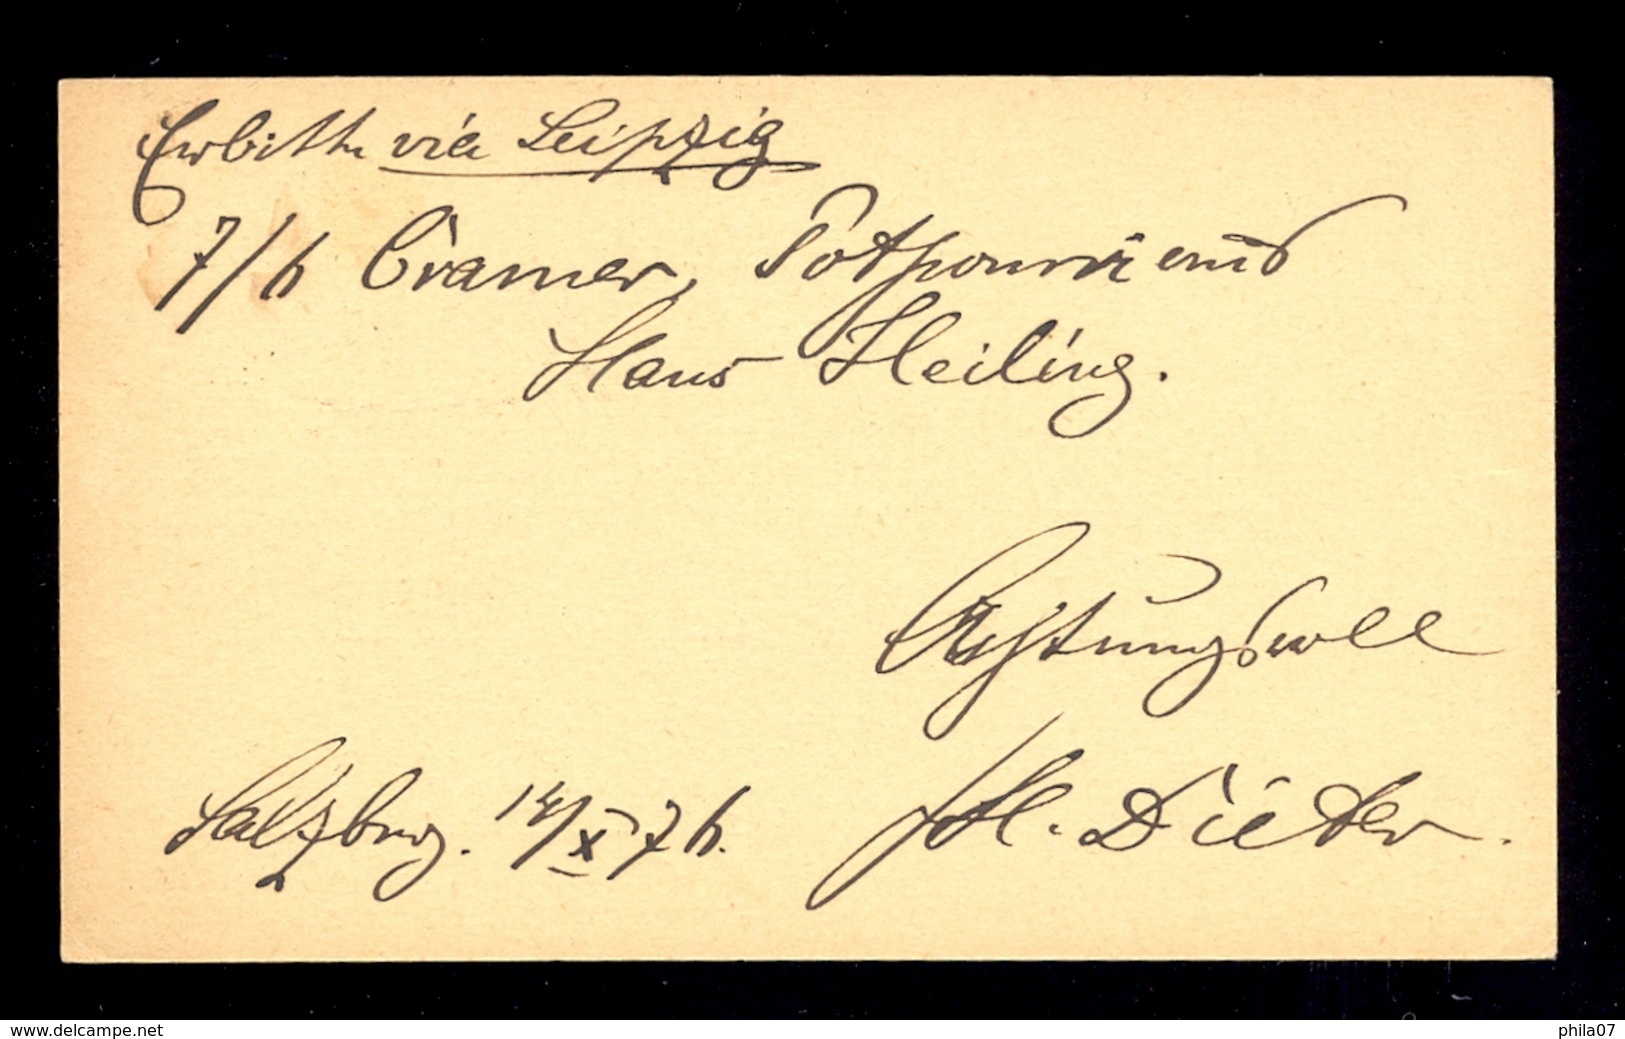 Erbitte via Leipzig
7/h Cramer, Potpourri aus
Hans Heiling.
Achtungsvoll
Salzburg. 14/X 76. H. Dieter.
www.delcampe.net
phila07